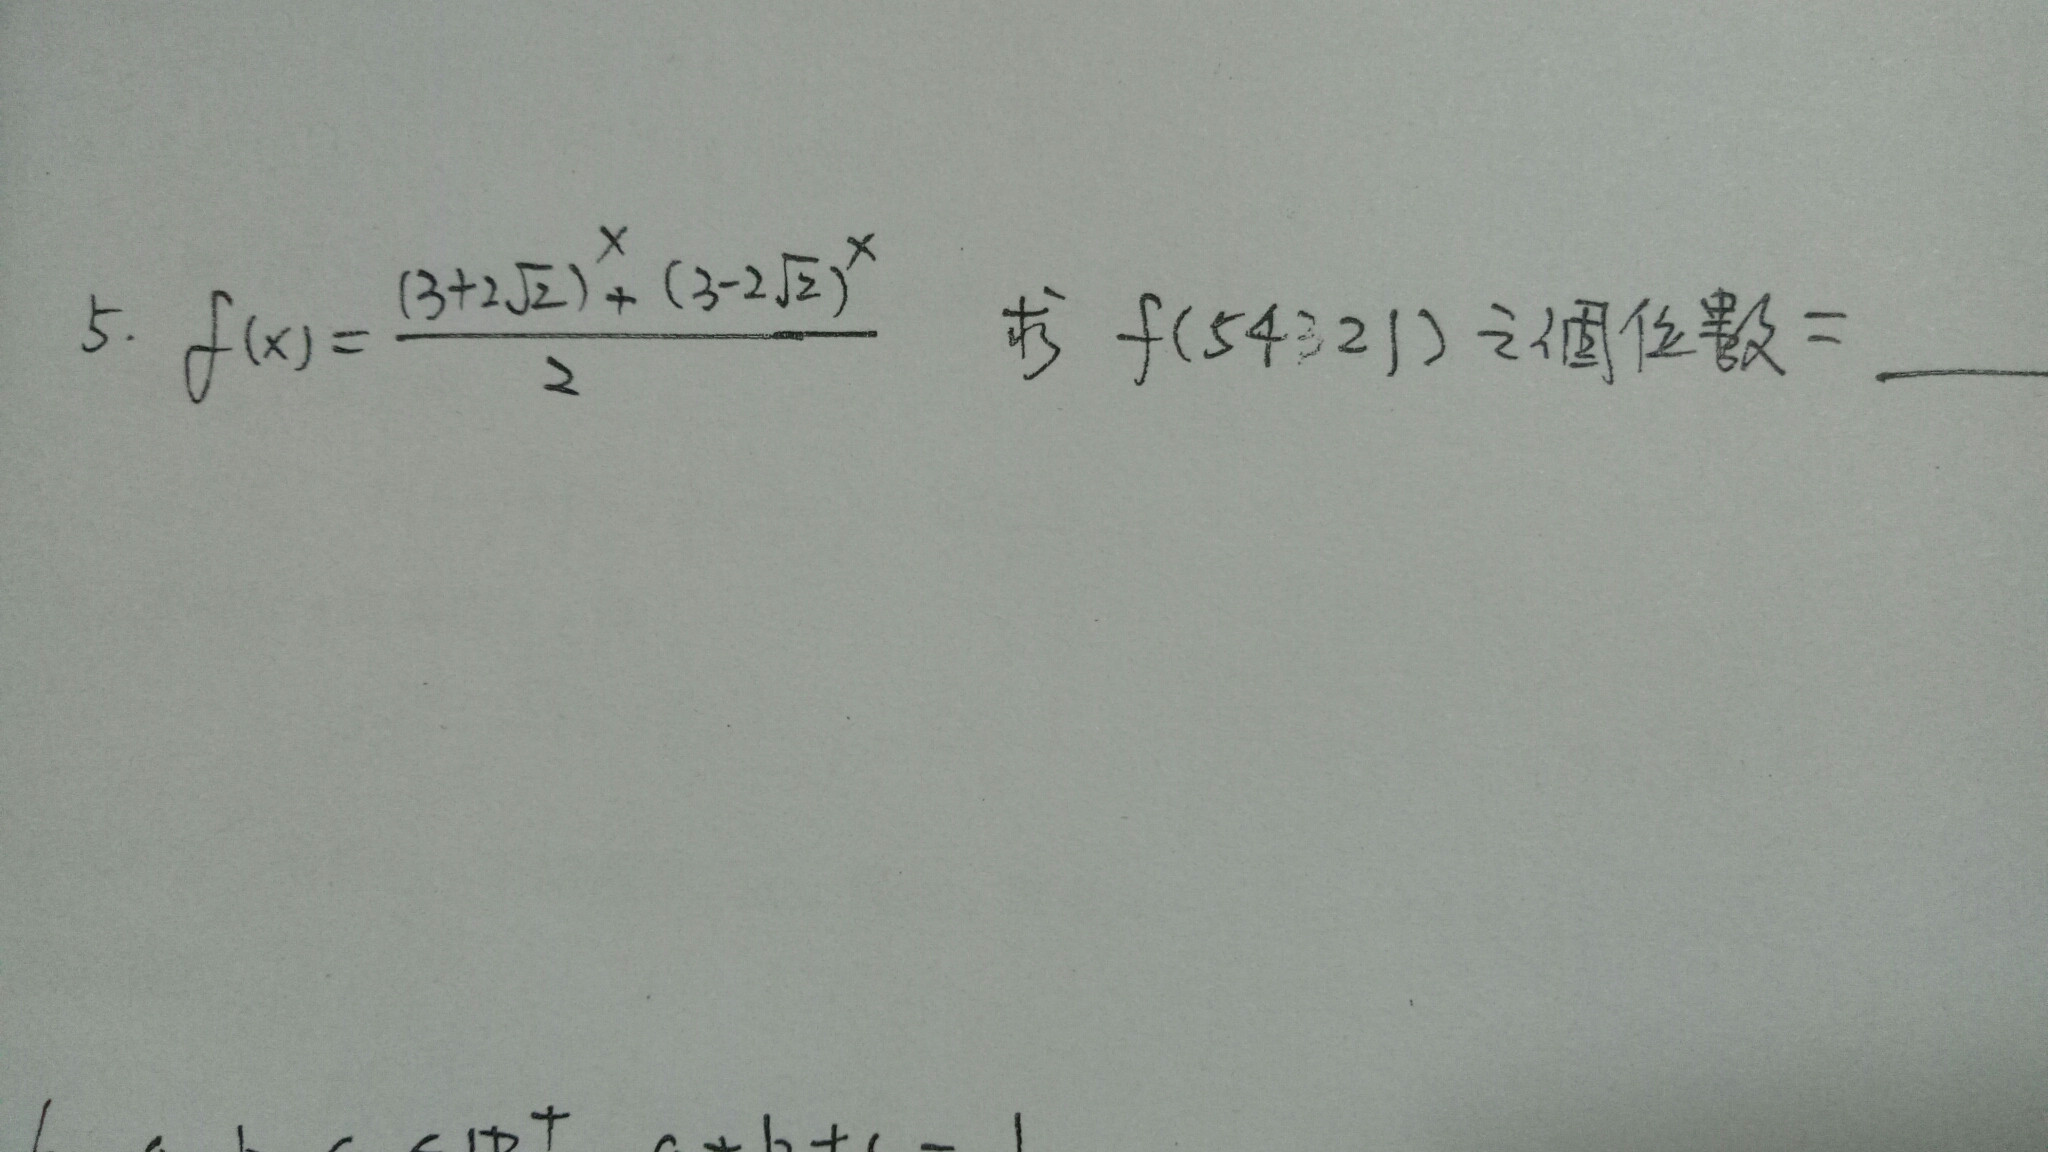 5. f(x) = \frac{(3+2\sqrt{2})^x + (3-2\sqrt{2})^x}{2} 求 f(54321) 之個位數 = ____